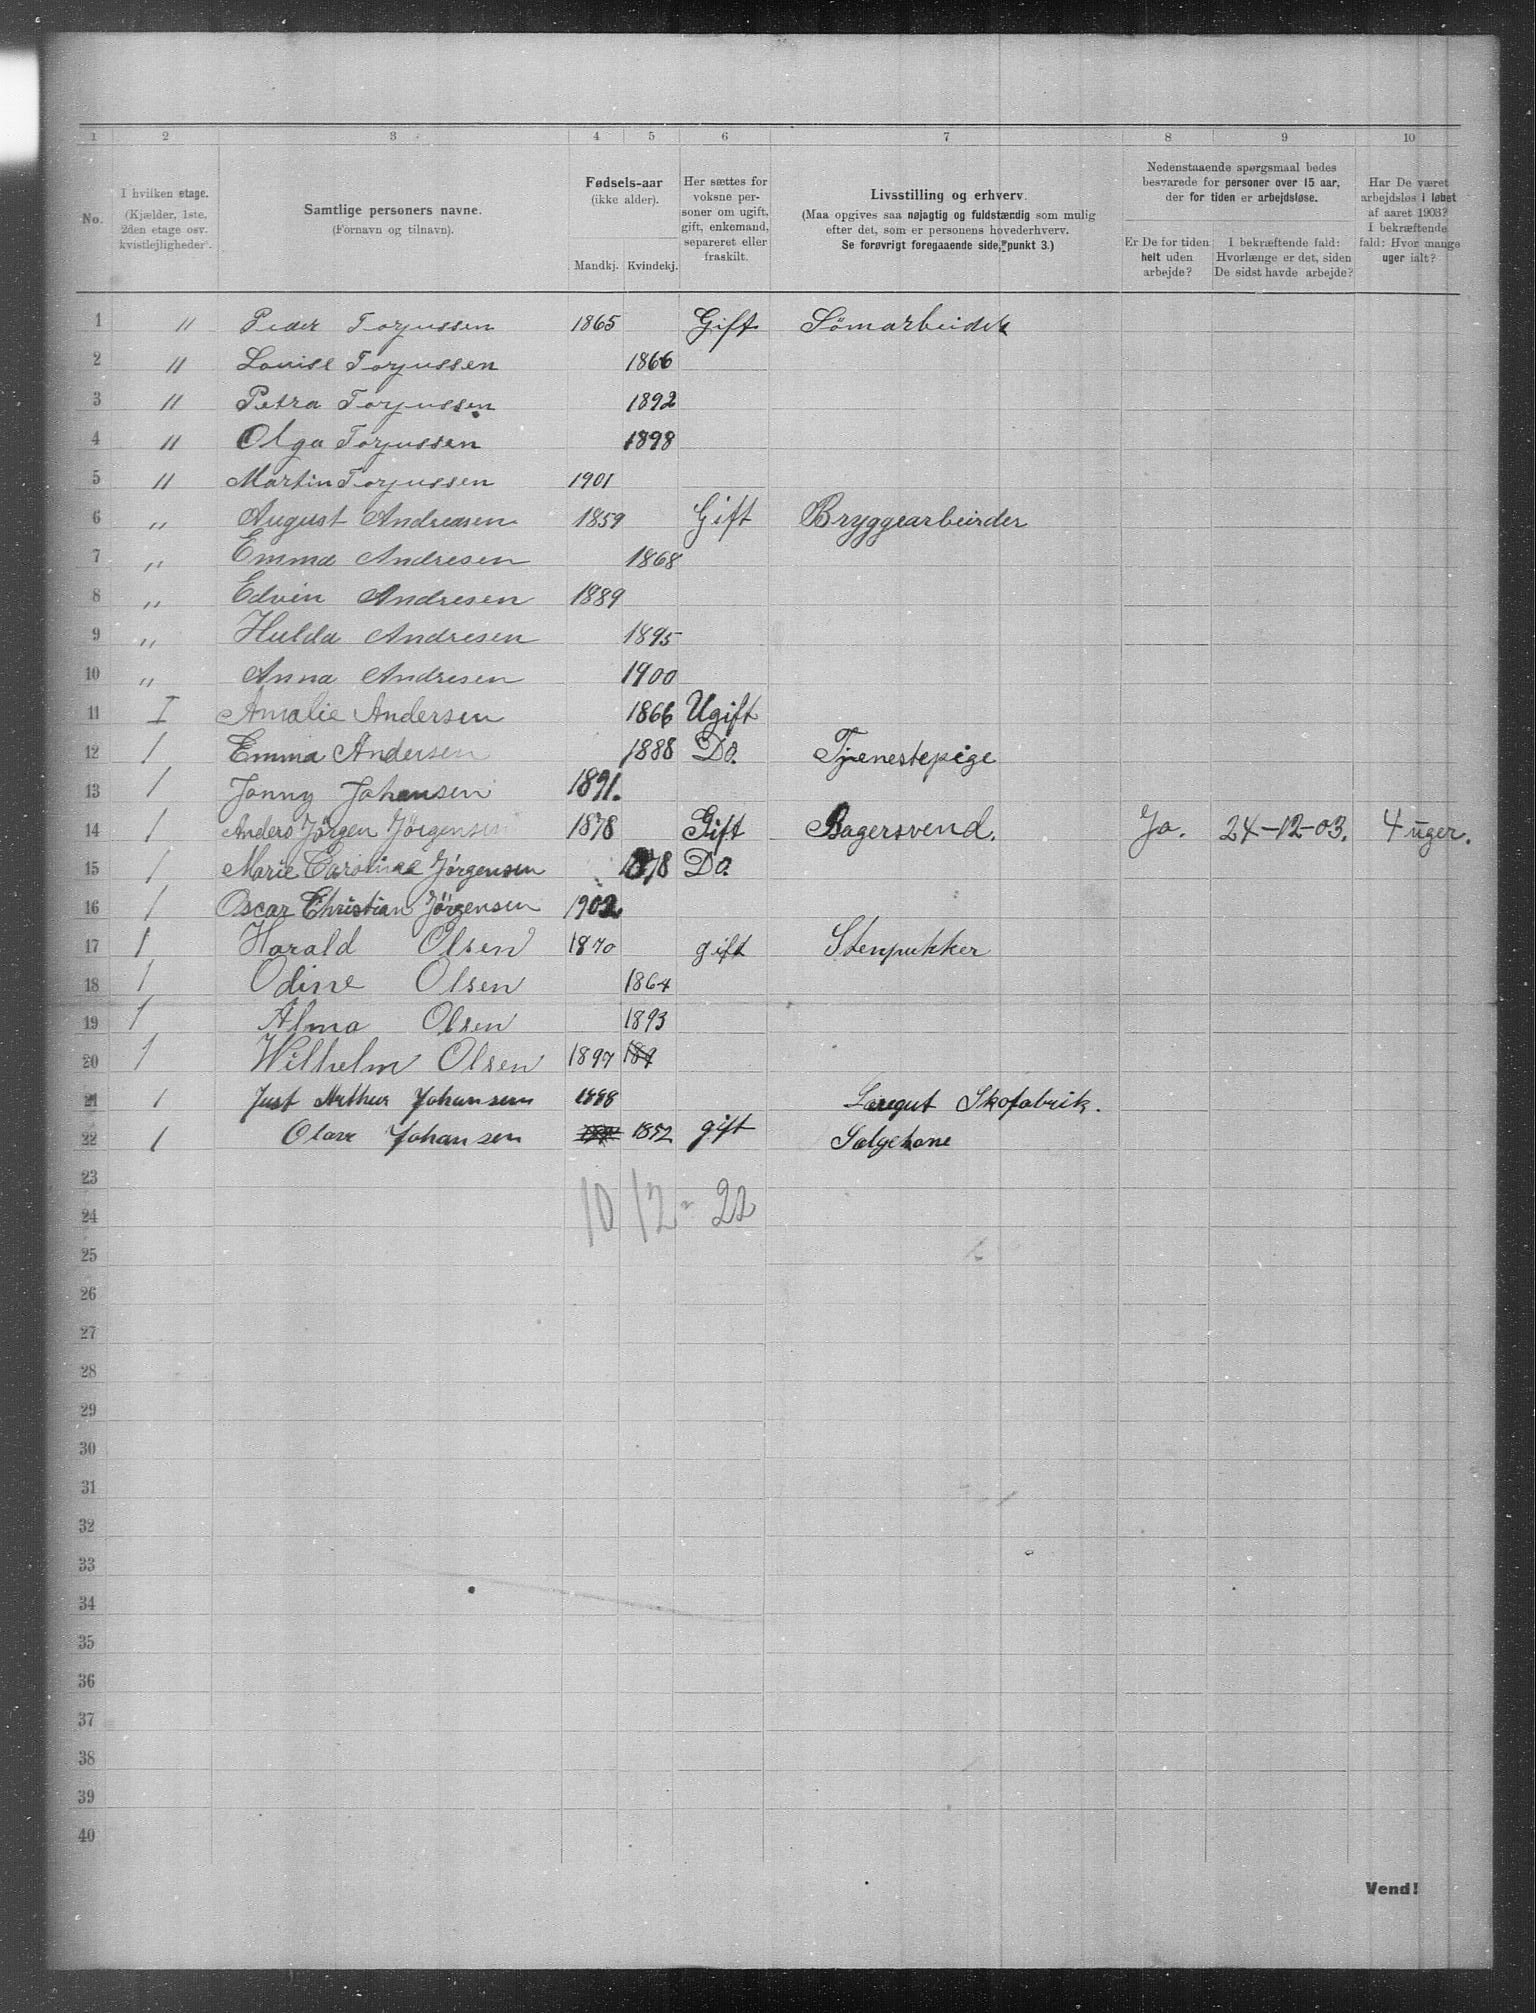 1 2 3 4 5 6 7 8 9 10
No.
I hvilken etage.
(Kjælder, 1ste,
2den etage osv.
kvistlejligheder).
Samtlige personers navne.
(Fornavn og tilnavn).
Fødsels-aar
(ikke alder).
Mandkj. Kvindekj.
Her sættes for
voksne per-
soner om ugift,
gift, enkemand,
separeret eller
fraskilt.
Livsstilling og erhverv.
(Maa opgives saa nøjagtig og fuldstændig som mulig
efter det, som er personens hovederhverv.
Se forøvrigt foregaaende side, punkt 3.)
Nedenstaaende spørgsmaal bedes
besvarede for personer over 15 aar,
der for tiden er arbejdsløse.
Er De for tiden
helt uden
arbejde?
I bekræftende fald:
Hvorlænge er det, siden
De sidst havde arbejde?
Har De været
arbejdsløs i løbet
af aaret 1903?
I bekræftende
fald: Hvor mange
uger ialt?
1 " Peder Torjussen 1865 Gift Sömarbeider
2 " Louise Torjussen 1866
3 " Petra Torjussen 1892
4 " Olga Torjussen 1898
5 " Martin Torjussen 1901
6 " August Andreasen 1859 Gift Bryggearbeirder
7 " Emma Andresen 1868
8 " Edvin Andresen 1889
9 " Hulda Andresen 1895
10 " Anna Andresen 1900
11 I Amalie Andersen 1866 Ugift
12 1 Emma Andersen 1888 Do. Tjenestepige
13 1 Jonny Johansen 1891.
14 1 Anders Jörgen Jörgensen 1878 Gift Bagersvend. Ja. 24-12-03. 4 uger.
15 1 Marie Caroline Jörgensen 1878 Do.
16 1 Oscar Christian Jörgensen 1902
17 1 Harald Olsen 1870 gift Stenpukker
18 1 Odine Olsen 1864
19 1 Alma Olsen 1893
20 1 Wilhelm Olsen 1897 189
21 1 Just Arthur Johansen 1888 Skofabrik.
22 1 Johansen 1852 gift Salgekone
23
24 10 12 = 22
25
26
27
28
29
30
31
32
33
34
35
36
37
38
39
40
Vend!